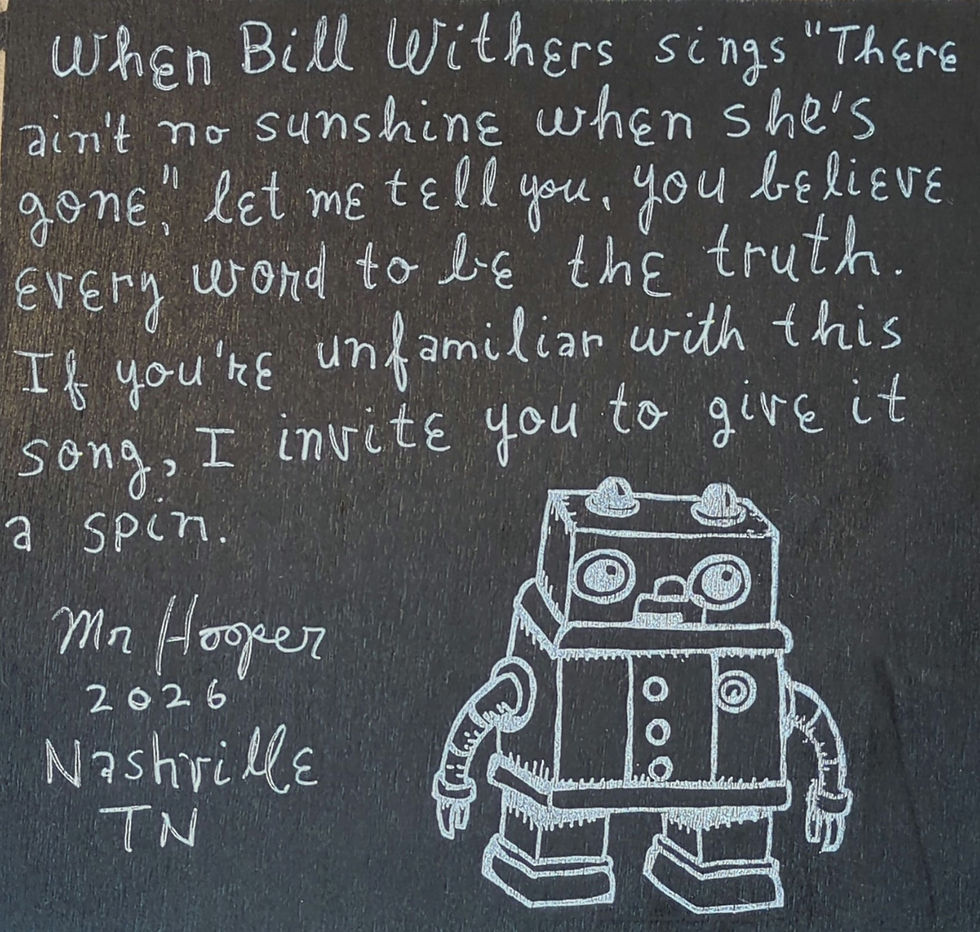 When Bill Withers sings "There
ain't no sunshine when she's
gone," let me tell you, you believe
every word to be the truth.
If you're unfamiliar with this
song, I invite you to give it
a spin.
Mr Hooper
2026
Nashville
TN